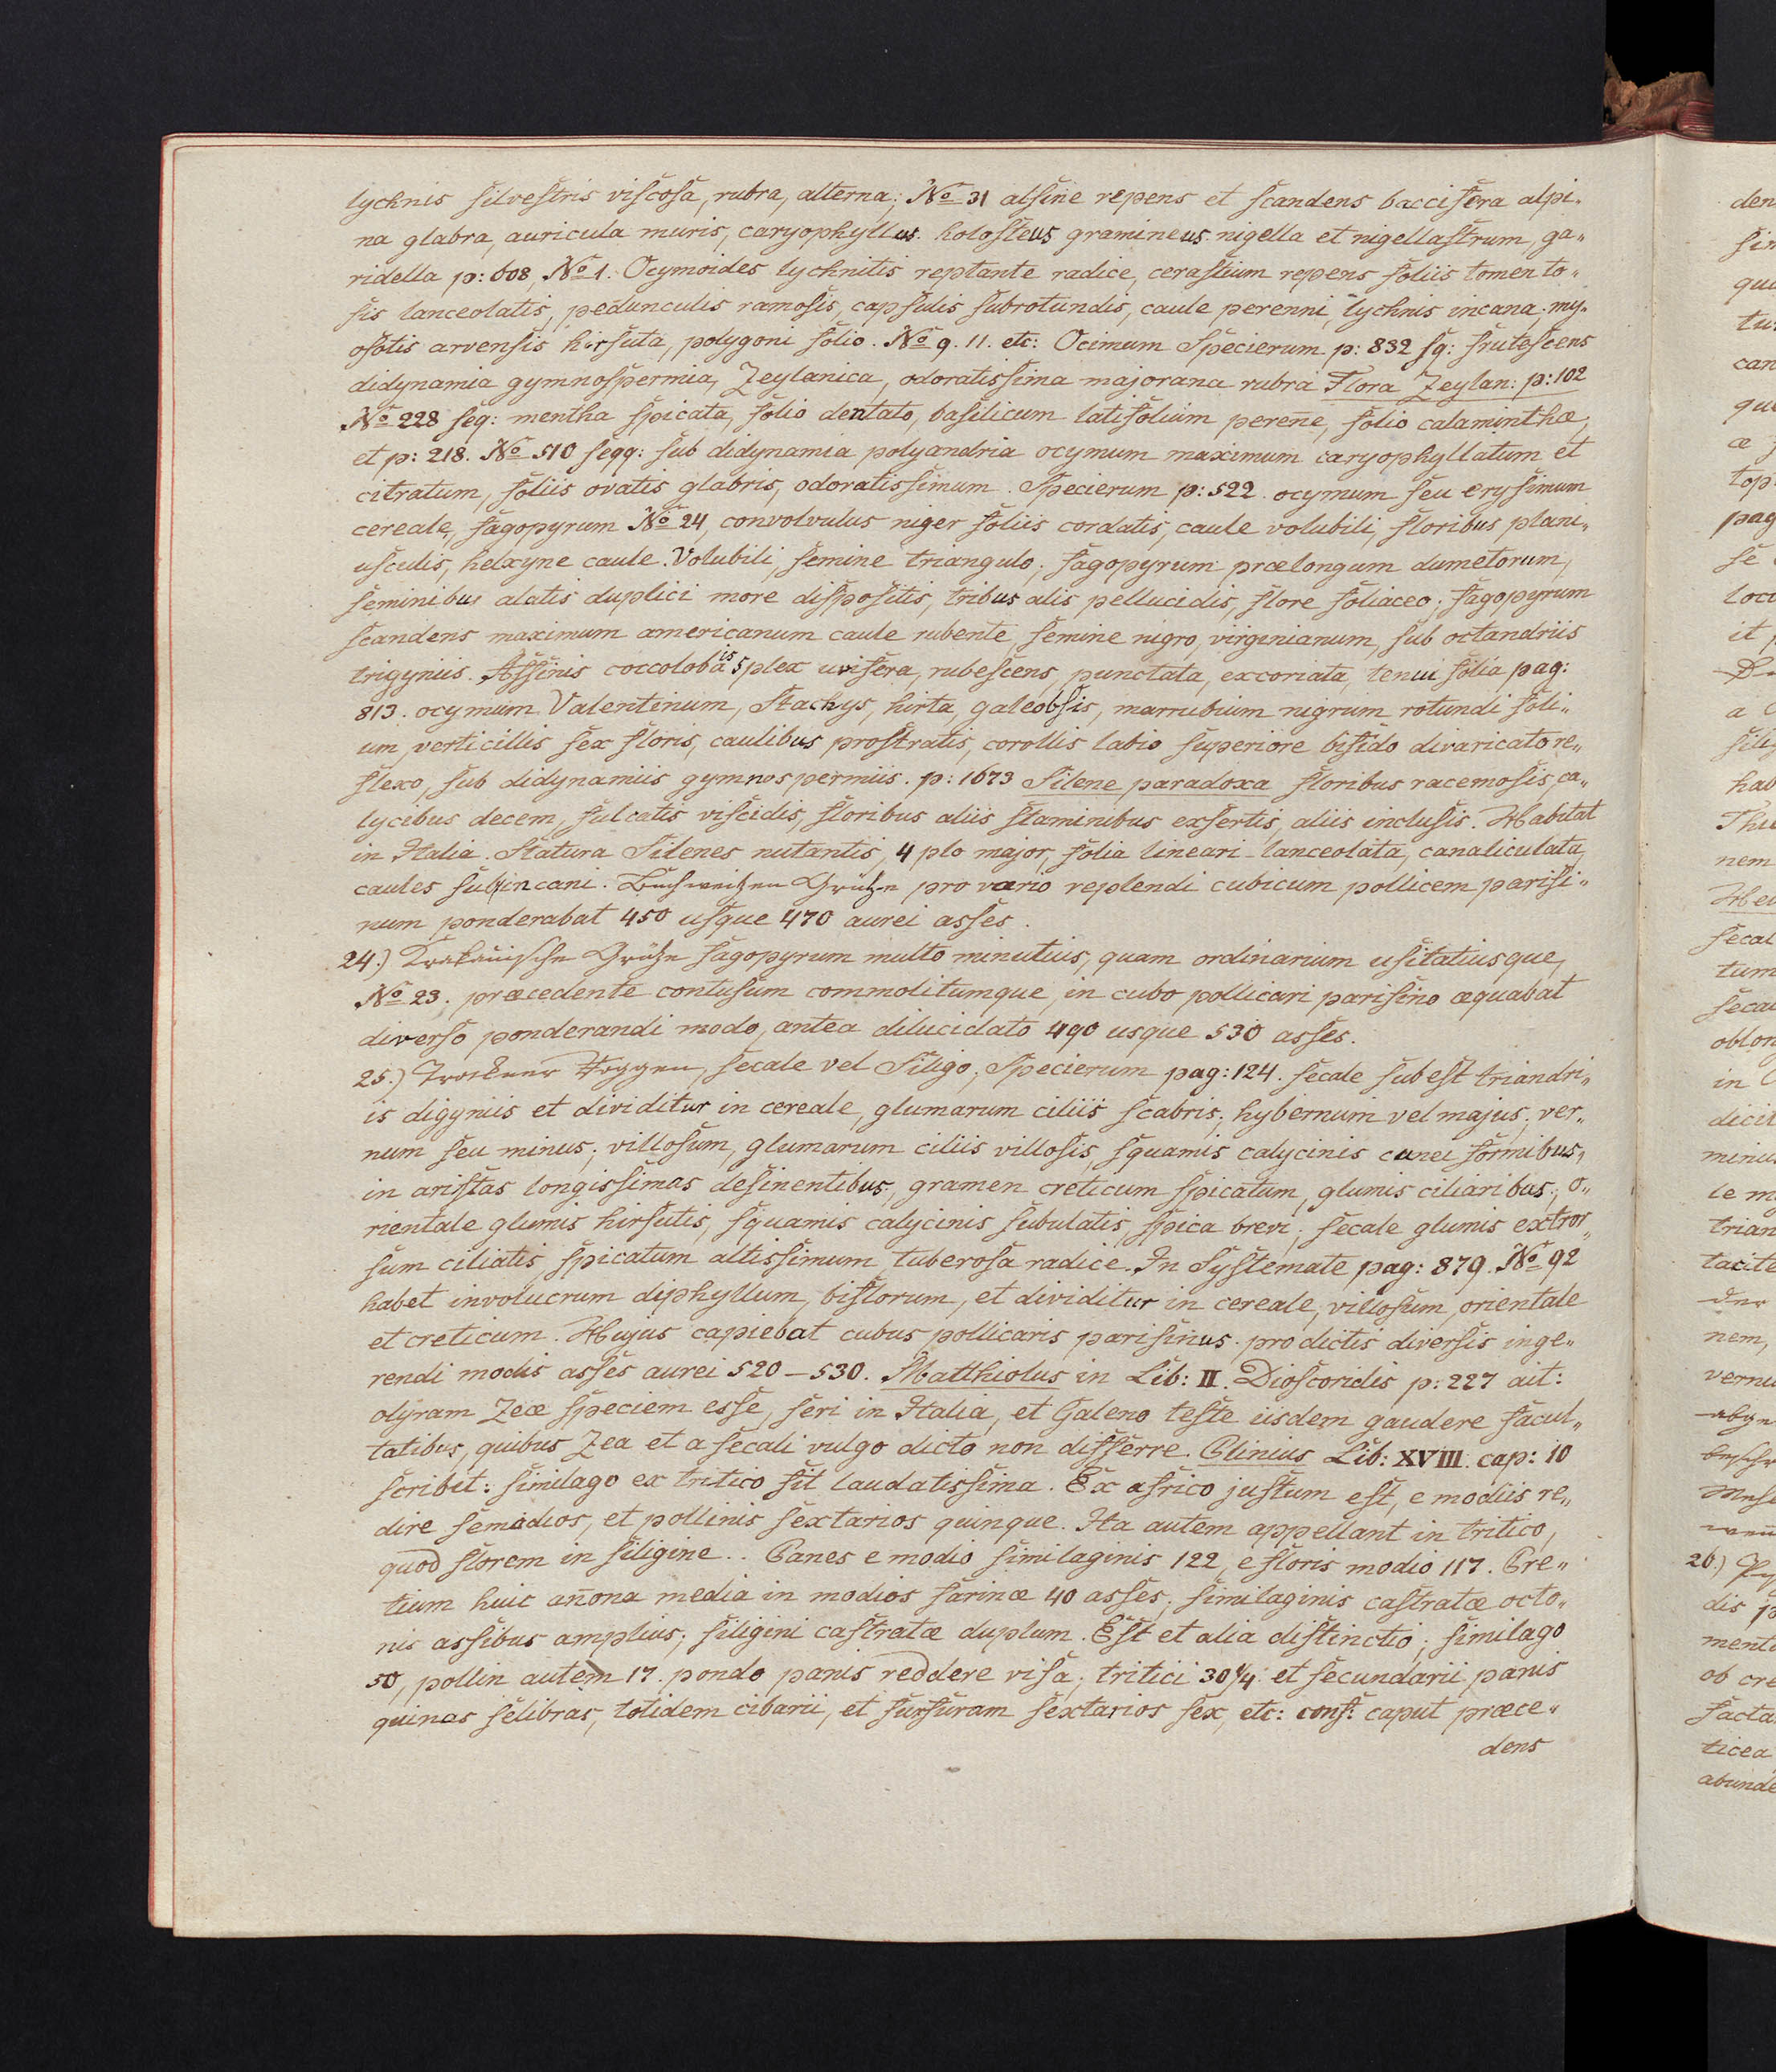 lychnis silvestris viscosa, rubra, alterna; No 31 alsine repens et scandens baccifera alpi„
na glabra, auricula muris, caryophyllus. holosteus gramineus. nigella et nigellastrum, ga„
ridella p: 608, No 1. Ocymoides lychnitis reptante radice, cerastium repens foliis tomento„
sis lanceolatis, pedunculis ramosis, capsulis subrotundis, caule perenni, lychnis incana, my„
osotis arvensis hirsuta, polygoni folio. No 9. 11. etc: Ocimum Specierum p: 832 sq: frutescens
didynamia gymnospermia, Zeylanica, odoratissima majorana rubra Flora Zeylan: p: 102
No 228 seq: mentha spicata, folio dentato, basilicum latifolium pereñe, folio calaminthæ,
et p: 218. No 510 seqq: sub didynamia polyandria ocymum maximum caryophyllatum et
citratum, foliis ovatis glabris, odoratissimum. Specierum p: 522. ocymum seu erysimum
cereale, fagopyrum No 24, convolvulus niger foliis cordatis, caule volubili, floribus plani„
usculis, helxyne caule Volubili, semine triangulo; fagopyrum prælongum dumetorum,
seminibus alatis duplici more dispositis, tribus alis pellucidis, flore foliaceo; fagopyrum
scandens maximum americanum caule rubente, semine nigro, virginianum, sub octandriis
trigyniis. Affinis coccolobais 5plex uvifera, rubescens, punctata, excoriata, tenui folia pag:
813. ocymum Valentinum, Stachys, hirta, galeobsis, marrubium nigrum rotundi foli„
um, verticillis sex floris, caulibus prostratis, corollis labio superiore bifido divaricato re„
flexo, sub didynamiis gymnospermiis. p: 1673 Silene paradoxa floribus racemosis, ca„
lycibus decem, sulcatis viscidis, floribus aliis staminibus exsertis, aliis inclusis. Habitat
in Italia. Statura Silenes nutantis, 4 plo major, folia lineari-lanceolata, canaliculata,
caules subincani. Buchweitzen Grütze pro vario replendi cubicum pollicem parisi„
num ponderabat 450 usque 470 aurei asses.
24.) Krakauische Grütze fagopyrum multo minutius, quam ordinarium usitatiusque,
No 23. præcedente contusum commolitumque, in cubo pollicari parisino æquabat
diverso ponderandi modo, antea dilucidato 490 usque 530 asses.
25.) Trockener Roggen, secale vel Siligo; Specierum pag: 124. secale subest triandri„
is digyniis et dividitur in cereale, glumarum ciliis scabris; hybernum vel majus; ver„
num seu minus; villosum, glumarum ciliis villosis, squamis calycinis cuneiformibus,
in aristas longissimas desinentibus, gramen creticum spicatum, glumis ciliaribus; o„
rientale glumis hirsutis, squamis calycinis subulatis, spica brevi; secale glumis extror„
sum ciliatis, spicatum altissimum, tuberosa radice. In Systemate pag: 879. No 92
habet involucrum diphyllum, biflorum, et dividitur in cereale, villosum, orientale
et creticum. Hujus capiebat cubus pollicaris parisinus. pro dictis diversis inge„
rendi modis asses aurei 520–530. Matthiolus in Lib: II. Dioscoridis p: 227 ait:
olyram Zeæ speciem esse, seri in Italia, et Galeno teste iisdem gaudere facul„
tatibus, quibus Zea et a secali vulgo dicto non differre. Plinius Lib: XVIII. cap: 10
scribit: similago ex tritico fit laudatissima. Ex africo justum est, e modiis re„
dire semodios, et pollinis sextarios quinque. Ita autem appellant in tritico,
quod florem in siligine.. Panes e modio similaginis 122, e floris modio 117. Pre„
tium huic añona media in modios farinæ 40 asses; similaginis castratæ octo„
nis assibus amplius; siligini castratæ duplum. Est et alia distinctio; similago
50, pollin autem 17. pondo panis reddere visa; tritici 30 1/4 et secundarii panis
quinas selibras, totidem cibarii, et furfuram sextarios sex, etc: conf: caput præce„
dens